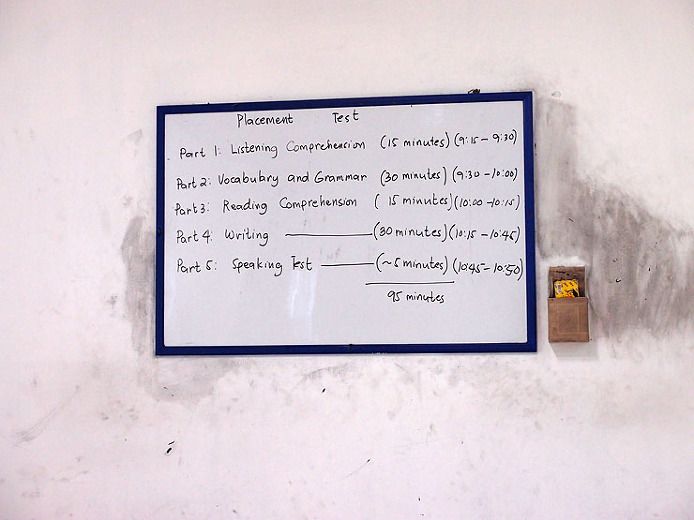 Placement Test
Part 1: Listening Comprehension (15 minutes) (9:15 - 9:30)
Part 2: Vocabulary and Grammar (30 minutes) (9:30 - 10:00)
Part 3: Reading Comprehension (15 minutes) (10:00 - 10:15)
Part 4: Writing ——— (30 minutes) (10:15 - 10:45)
Part 5: Speaking Test ——— (~5 minutes) (10:45 - 10:50)
95 minutes